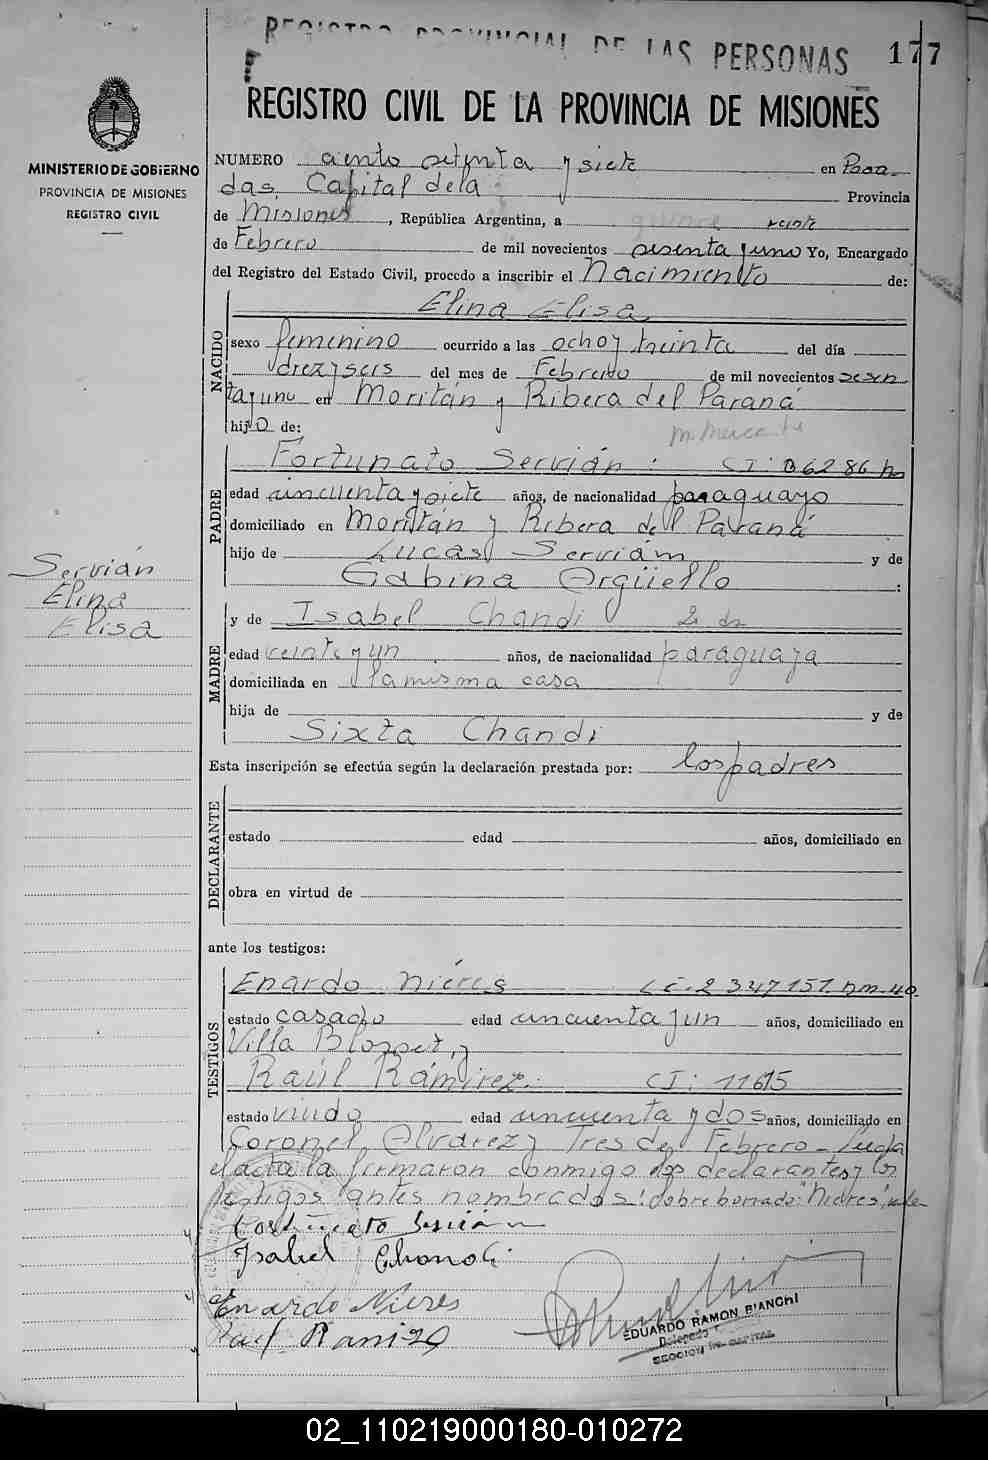 REGISTRO PROVINCIAL DE LAS PERSONAS
177
REGISTRO CIVIL DE LA PROVINCIA DE MISIONES
MINISTERIO DE GOBIERNO
PROVINCIA DE MISIONES
REGISTRO CIVIL
NUMERO ciento setenta y siete en Posa-
das Capital dela Provincia
de Misiones, República Argentina, a veinte
de Febrero de mil novecientos sesenta y uno Yo, Encargado
del Registro del Estado Civil, procedo a inscribir el Nacimiento de:
Elina Elisa
NACIDO
sexo femenino ocurrido a las ocho y treinta del día
diez y seis del mes de Febrero de mil novecientos sesen
ta y uno en Moritán y Ribera del Paraná
hijo de:
Fortunato Servián : CI: 06286
PADRE
edad cincuenta y siete años, de nacionalidad paraguayo
domiciliado en Moritán y Ribera del Paraná
hijo de Lucas Servián y de
Gabina Orgüello :
Servián
Elina
Elisa
y de Isabel Chandi
MADRE
edad veinte y un años, de nacionalidad paraguaya
domiciliada en la misma casa
hija de y de
Sixta Chandi
Esta inscripción se efectúa según la declaración prestada por: los padres
DECLARANTE
estado edad años, domiciliado en
obra en virtud de
ante los testigos:
TESTIGOS
Enardo Nieres
estado casado edad cincuenta y un años, domiciliado en
Villa Blosset, y
Raúl Rámirez: CI: 11615
estado viudo edad cincuenta y dos años, domiciliado en
Coronel Alvarez y Tres de Febrero - Leida
el acta la firmaron conmigo los declarantes y los
testigos antes nombrados: sobre borrado: "Nieres", vale
Fortunato Servián
Isabel Chandi
Enardo Nieres
Raul Ramirez
EDUARDO RAMON BIANCHI
Delegado
SECCION CAPITAL
02_110219000180-010272